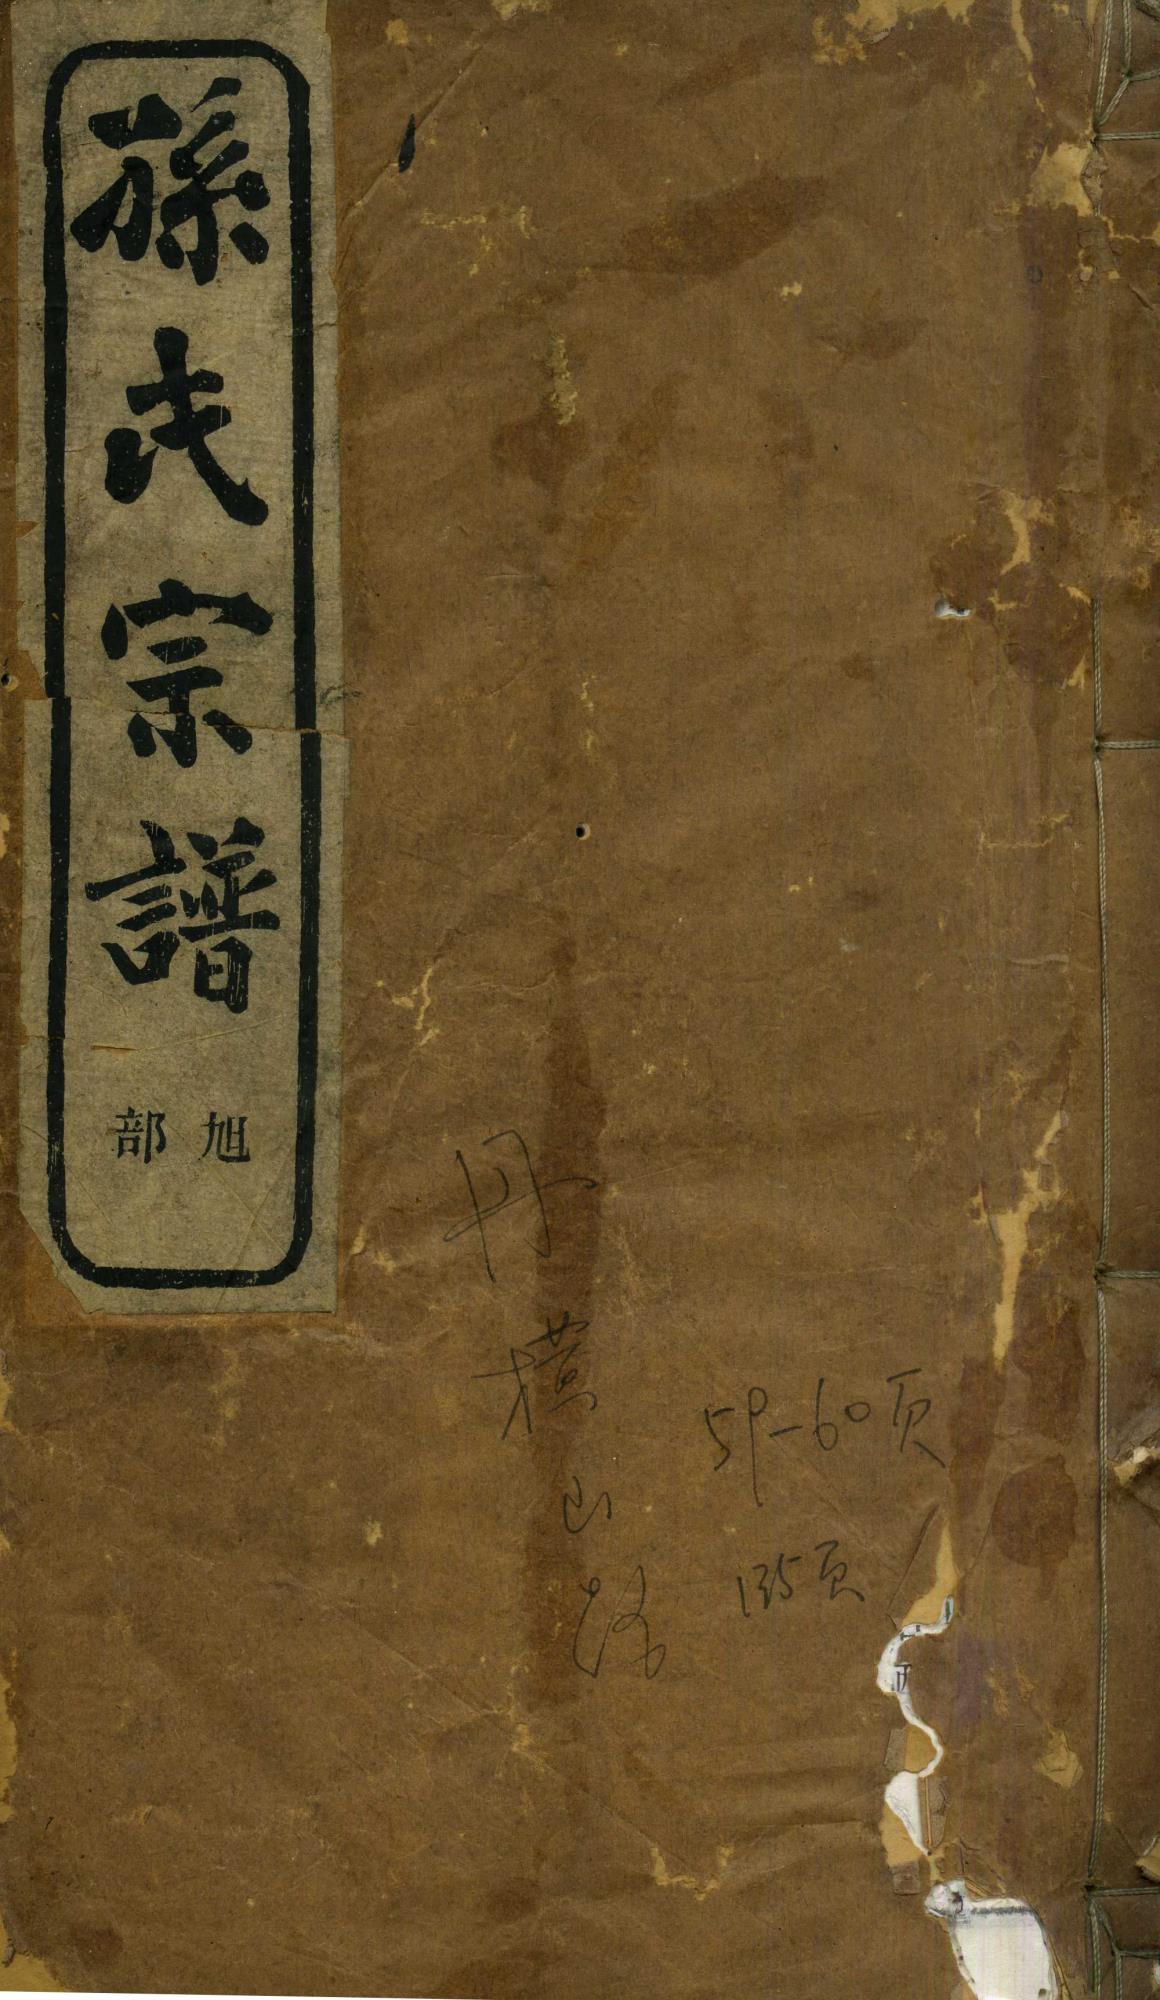 孫氏宗譜
旭部
丹
横
山
59-60页
135页